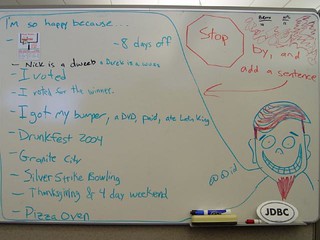 I'm so happy because....
- ~8 days off
- Nick is a dweeb
- I voted
- I voted for the winner.
- I got my bumper, a DVD, paid, ate Lota King
- Drunkfest 2004
- Granite City
- Silver Strike Bowling
- Thanksgiving & 4 day weekend
- Pizza Oven
Stop
by, and
add a sentence
JDBC